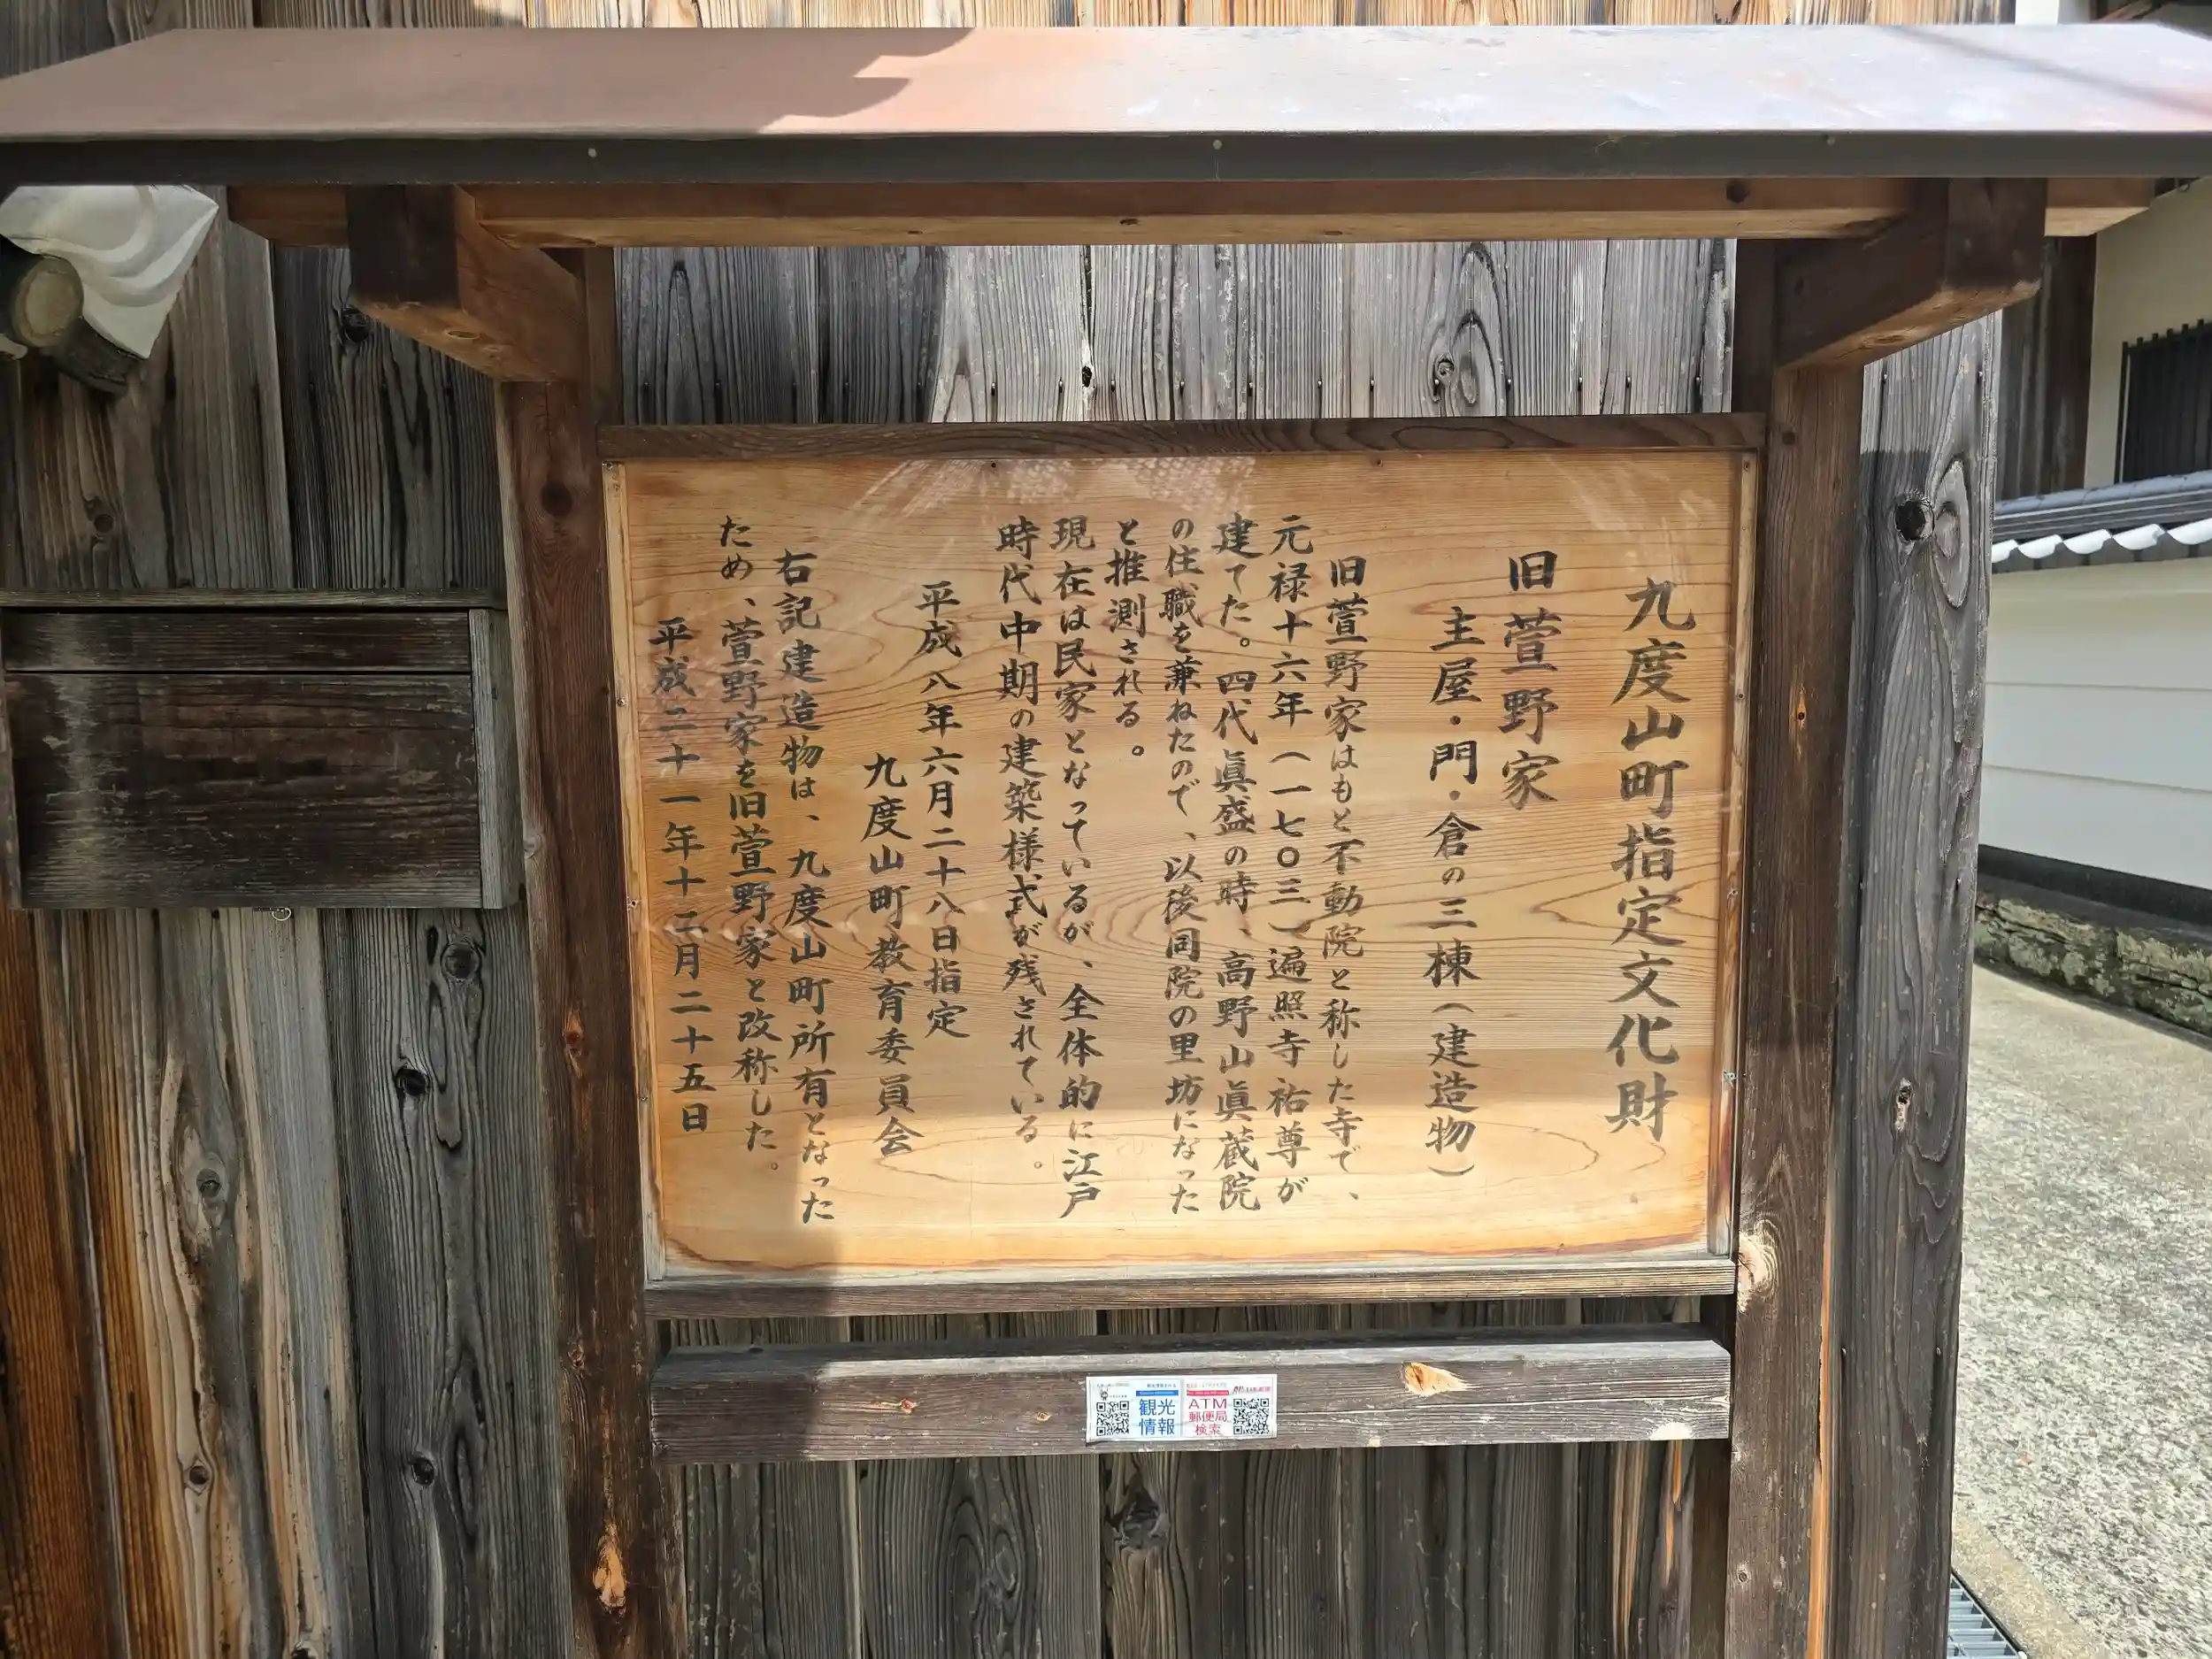 九度山町指定文化財
旧萱野家
主屋・門・倉の三棟(建造物)
旧萱野家はもと不動院と称した寺で、
元禄十六年(一七〇三)遍照寺祐尊が
建てた。四代眞盛の時、高野山眞蔵院
の住職を兼ねたので、以後同院の里坊になった
と推測される。
現在は民家となっているが、全体的に江戸
時代中期の建築様式が残されている。
平成八年六月二十八日指定
九度山町教育委員会
右記建造物は、九度山町所有となった
ため、萱野家を旧萱野家と改称した。
平成二十一年十二月二十五日
観光
情報
ATM
郵便局
検索